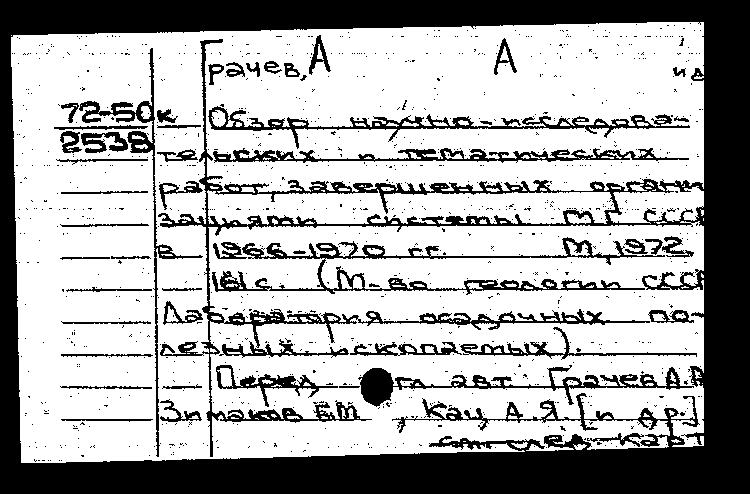 Грачев, А А
и д
72-50к Обзор научно-исследова-
2538 тельских и тематических
работ, завершенных органи
зациями системы МГ СССР
в 1966-1970 гг. М., 1972.
161 с. (М-во геологии СССР
Лаборатория осадочных по-
лезных ископаемых).
Перед. огл авт: Грачев А.А
Зимаков Б.М, Кац А.Я. [и др.]
см след карт